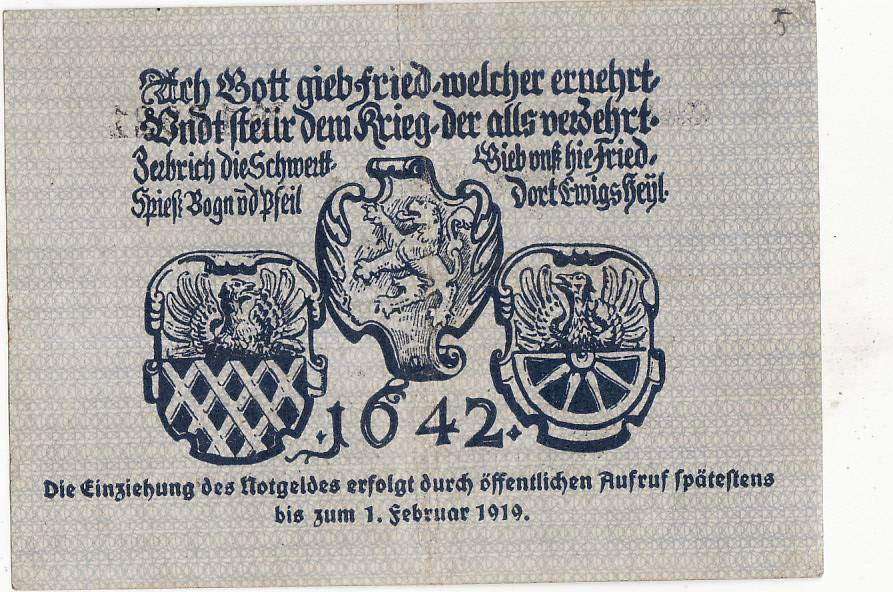 Ach Gott gieb Fried, welcher ernehrt,
Undt steür dem Krieg, der alls verzehrt.
Zerbrich die Schwertt,
Spieß Bogn ṽd Pfeil
Gieb vnß hie Fried,
Dort Ewigs Heÿl.
1642
Die Einziehung des Notgeldes erfolgt durch öffentlichen Aufruf spätestens
bis zum 1. Februar 1919.
5